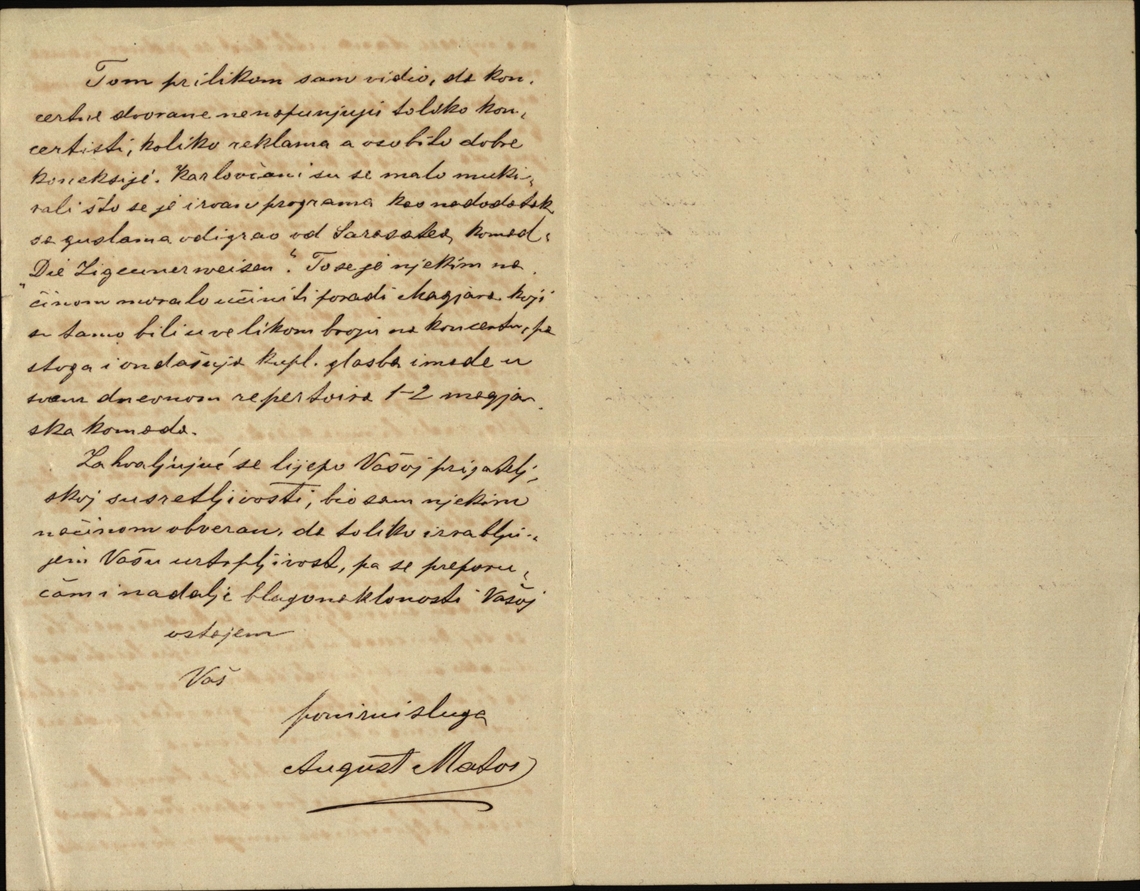 Tom prilikom sam vidio, da kon-
certne dvorane nenapunjuju toliko kon-
certisti, koliko reklama a osobito dobre
koneksije. Karlovčani su se malo muki-
rali što se je izvan programa kao nadodatak
sa guslama odigrao od Sarasatea, komad:
"Die Zigeunerweisen". To se je njekim na-
činom moralo učiniti poradi Magjara koji
su tamo bili u velikom broju na koncertu, pa
stoga i ondašnja kupl. glasba imade u
svom dnevnom repertoiru 1-2 magjar-
ska komada.
Zahvaljujuć se lijepo Vašoj prijatelj-
skoj susretljivosti, bio sam njekim
načinom obvezan, da toliko izrablju-
jem Vašu ustrpljivost, pa se preporu-
čam i nadalje blagonaklonosti Vašoj
ostajem
Vaš
ponizni sluga
August Matoš